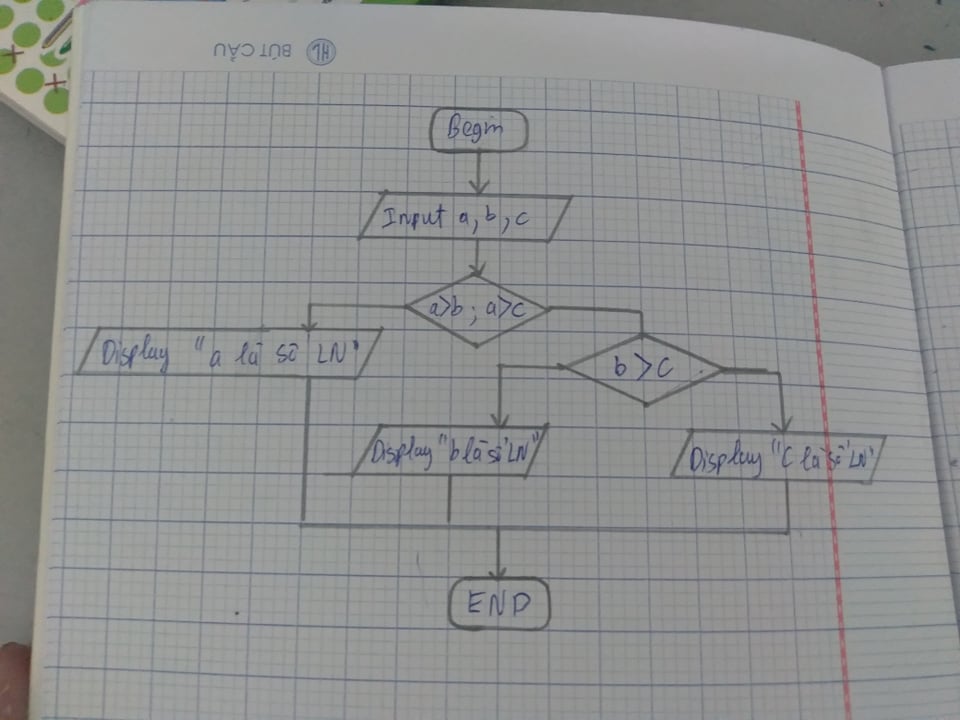 HL BÚT CẦU
Begin
Input a, b, c
a>b ; a>c
Display "a là số LN"
b > c
Display "b là số LN"
Display "C là số LN"
END